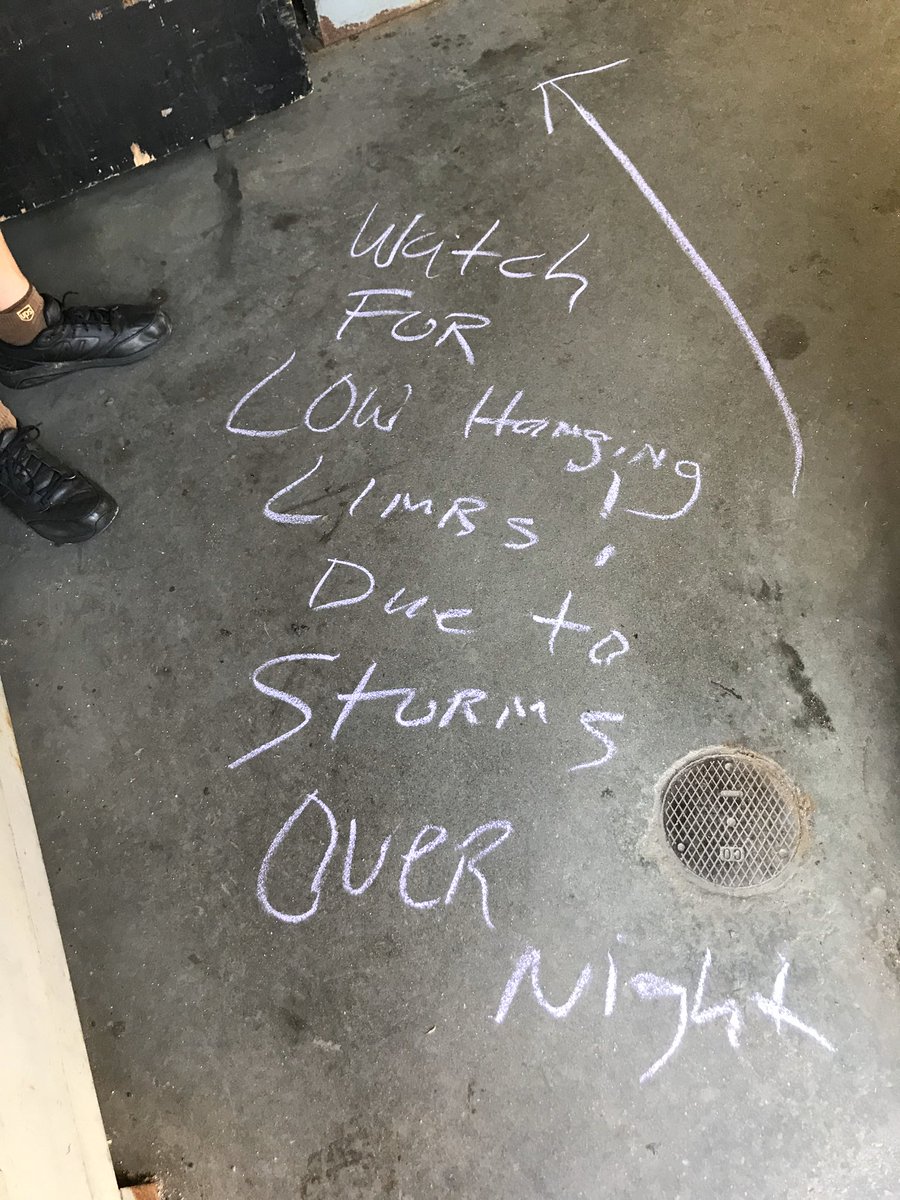 Watch
FOR
LOW Hanging
LIMBS!
Due to
STORMS
OVER
Night
ups
CO